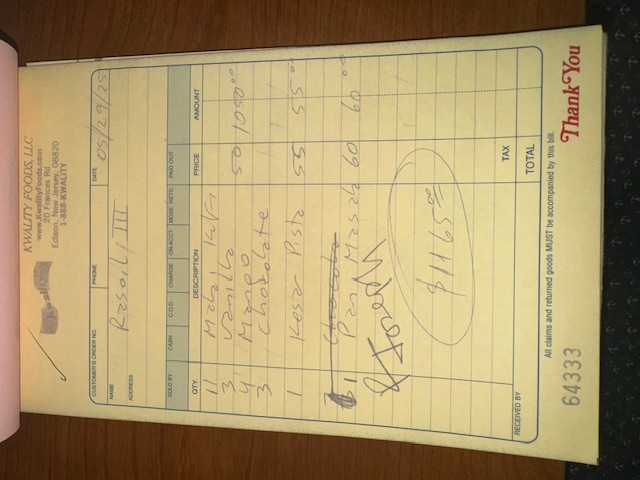 KWALITY FOODS, LLC
Kwality
www.KwalityFoods.com
20 Frances Rd
Edison, New Jersey, 08820
1-888-KWALITY
CUSTOMER'S ORDER NO. PHONE DATE 05/29/25
NAME Rasoi, III
ADDRESS
SOLD BY CASH C.O.D. CHARGE ON ACCT. MDSE. RETD. PAID OUT
QTY. DESCRIPTION PRICE AMOUNT
11 Malai
3 Vanilla
4 Mango 50 1050.00
3 Chocolate
1 Kesar Pista 55 55.00
1 Pan Masala 60 60.00
Joseph
$1165.00
TAX
RECEIVED BY
TOTAL
All claims and returned goods MUST be accompanied by this bill.
64333 Thank You